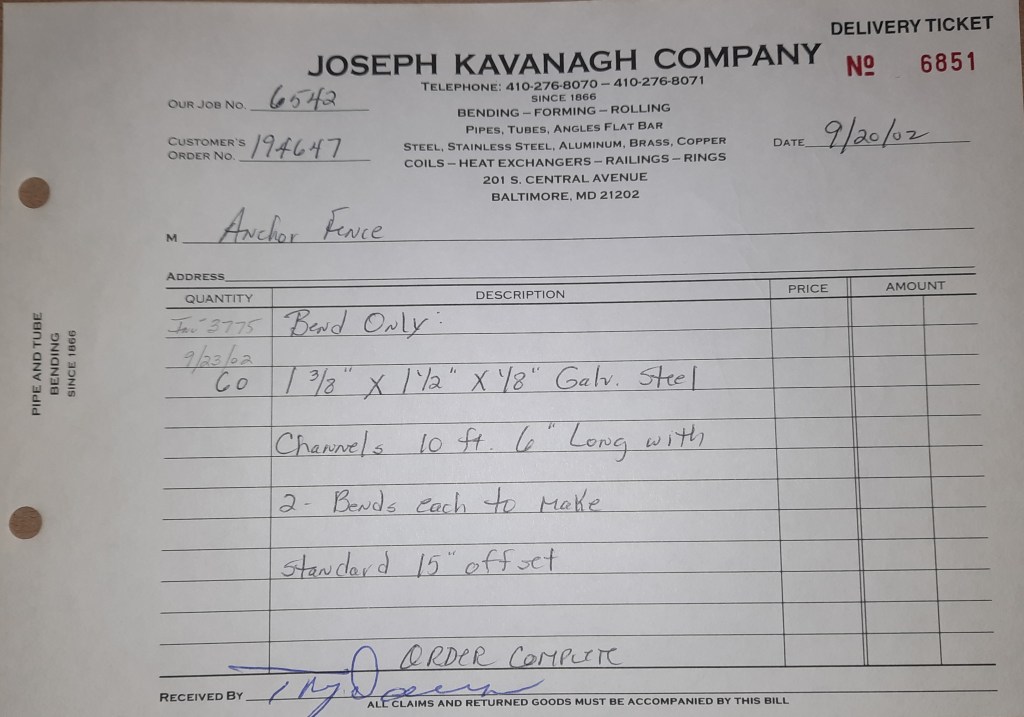 DELIVERY TICKET
JOSEPH KAVANAGH COMPANY
Nº 6851
TELEPHONE: 410-276-8070 – 410-276-8071
SINCE 1866
OUR JOB NO. 6542
BENDING – FORMING – ROLLING
PIPES, TUBES, ANGLES FLAT BAR
CUSTOMER'S ORDER NO. 194647
STEEL, STAINLESS STEEL, ALUMINUM, BRASS, COPPER
DATE 9/20/02
COILS – HEAT EXCHANGERS – RAILINGS – RINGS
201 S. CENTRAL AVENUE
BALTIMORE, MD 21202
M Anchor Fence
ADDRESS
QUANTITY DESCRIPTION PRICE AMOUNT
Inv 3775 Bend Only:
9/23/02
60 1 3/8" X 1 1/2" X 1/8" Galv. Steel
Channels 10 ft. 6" Long with
2 - Bends each to make
standard 15" offset
ORDER COMPLETE
RECEIVED BY
ALL CLAIMS AND RETURNED GOODS MUST BE ACCOMPANIED BY THIS BILL
PIPE AND TUBE
BENDING
SINCE 1866